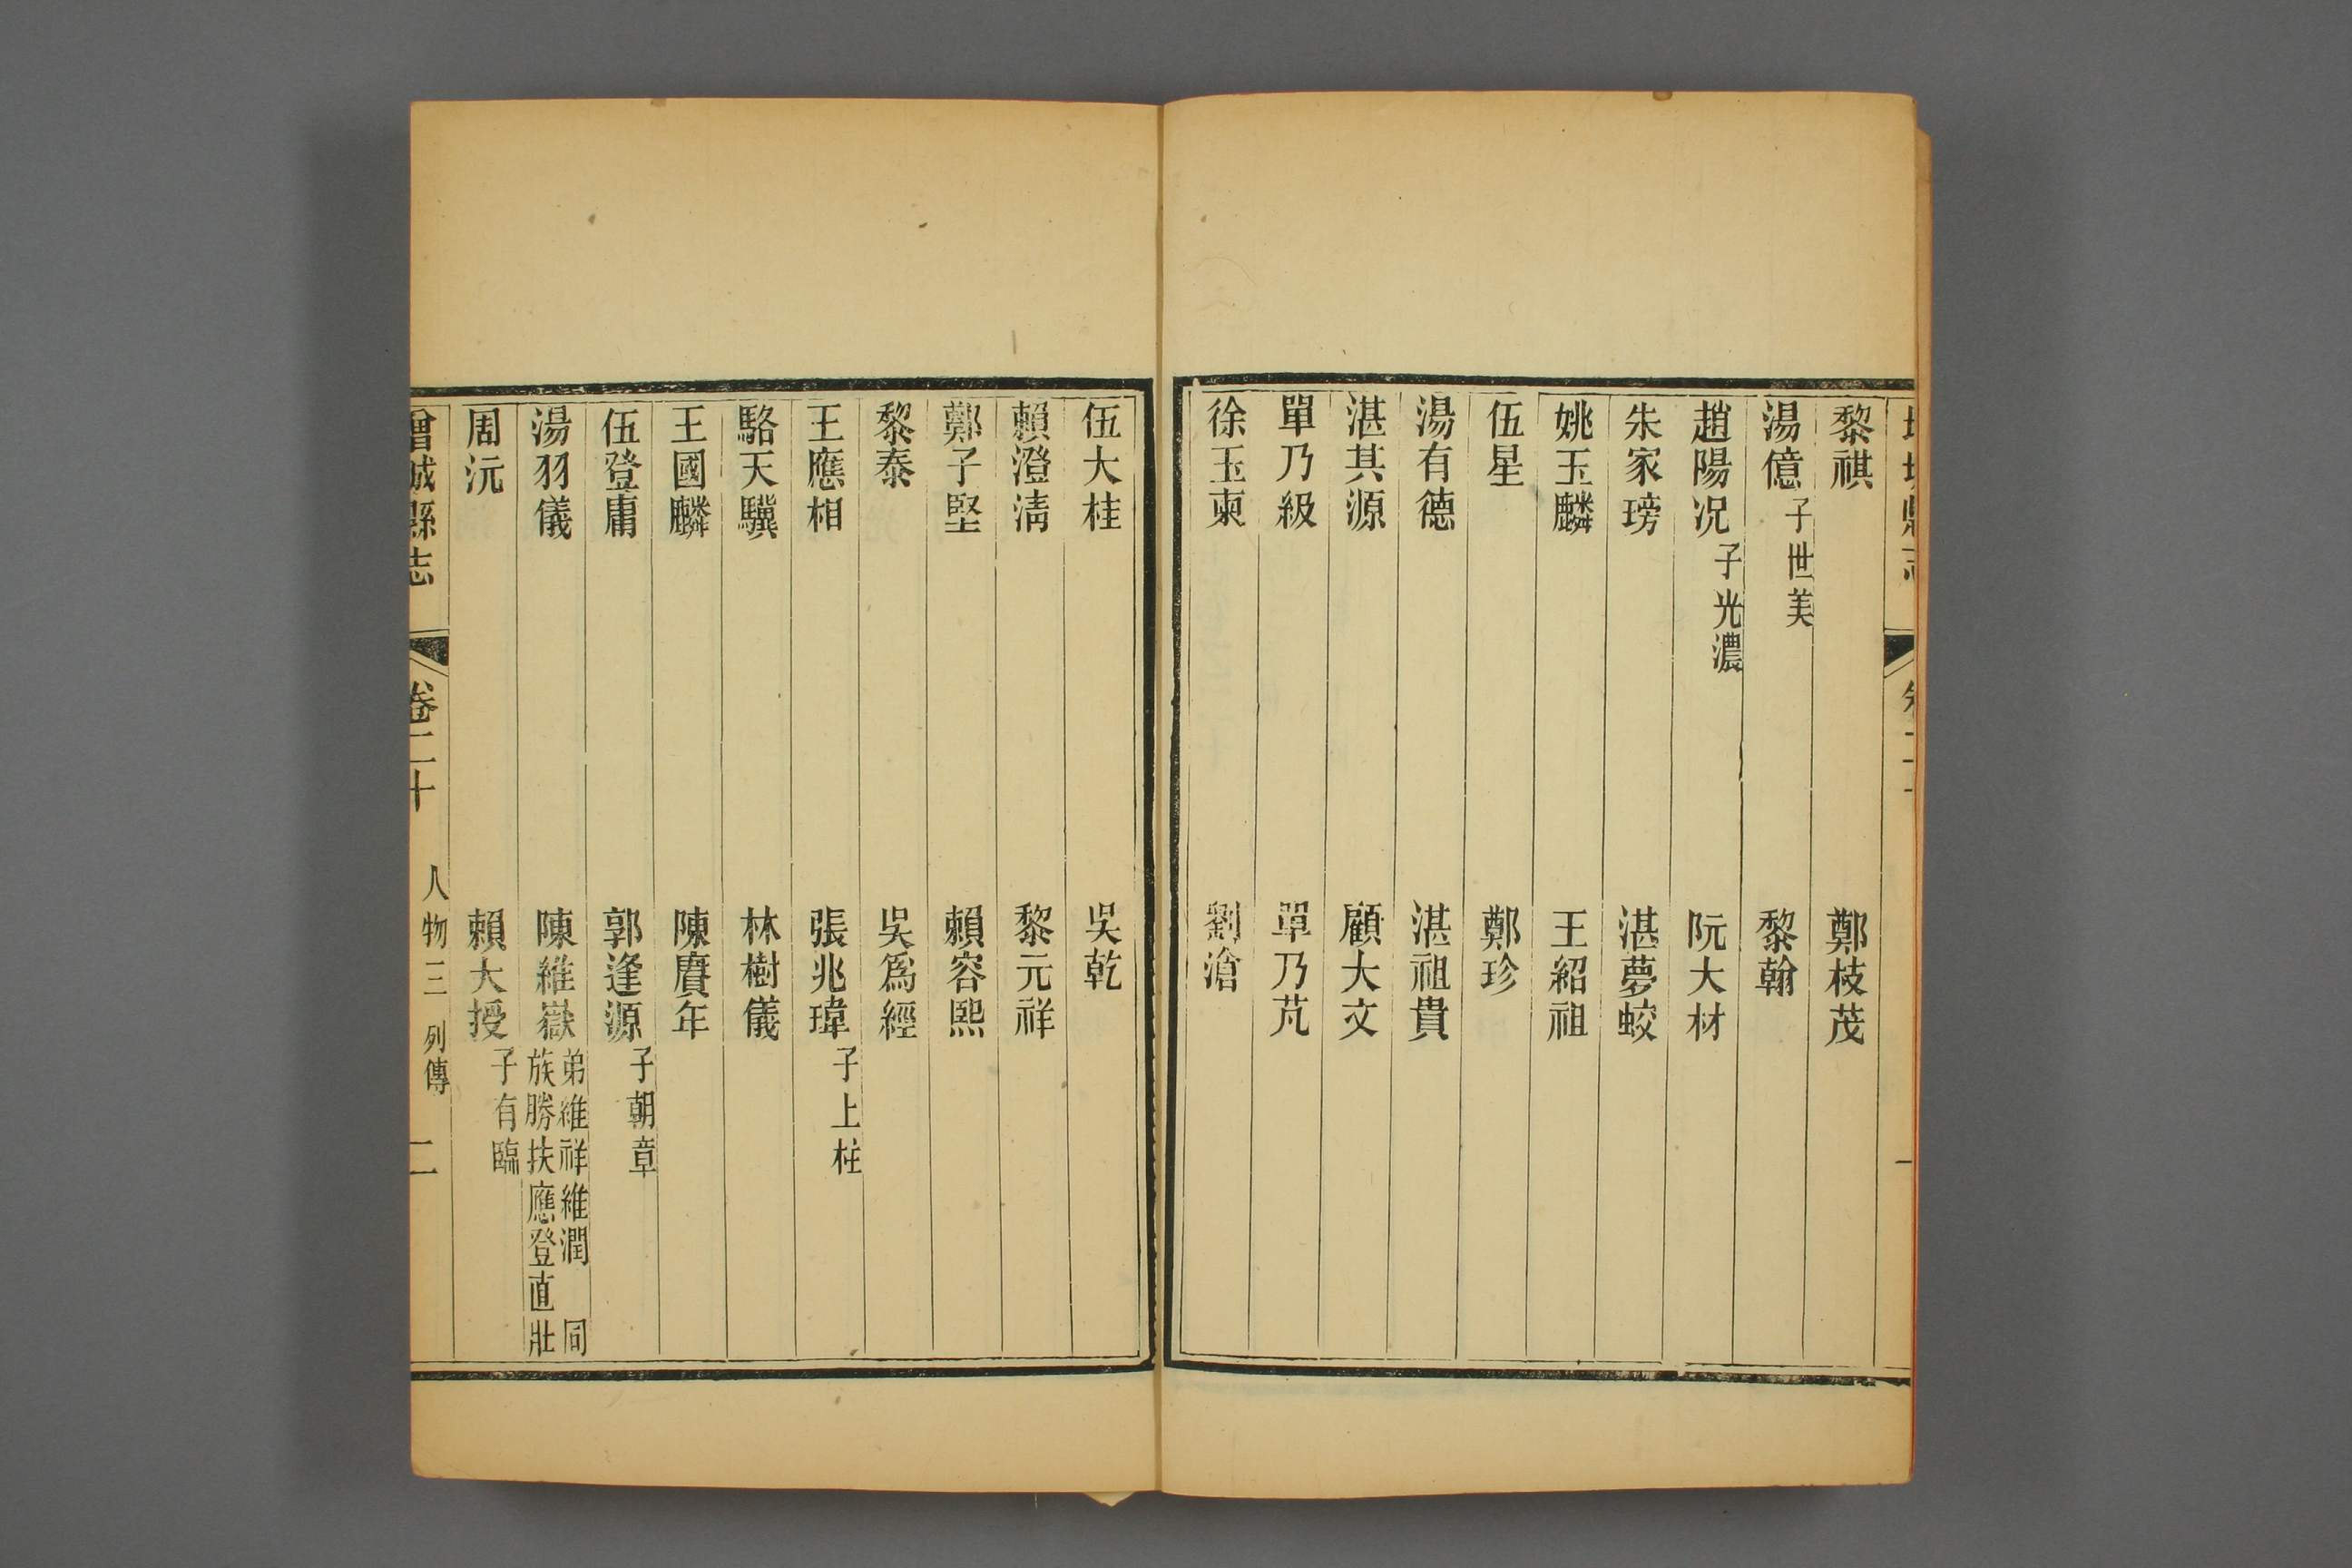 黎祺　鄭枝茂
湯億子世美　黎翰
趙陽况子光濃　阮大材
朱家瑗　湛夢蛟
姚玉麟　王紹祖
伍星　鄭珍
湯有德　湛祖貴
湛其源　顧大文
單乃級　單乃芃
徐玉柬　劉滄
伍大桂　吳乾
賴澄清　黎元祥
鄭子堅　賴容熙
黎泰　吳爲經
王應相　張兆瑋子上柱
駱天驥　林樹儀
王國麟　陳賡年
伍登庸　郭逢源子朝章
湯羽儀　陳維嶽弟維祥維潤　同
族勝扶應登直壯
周沅　賴大授子有臨
增城縣志　卷二十　人物三　列傳　二